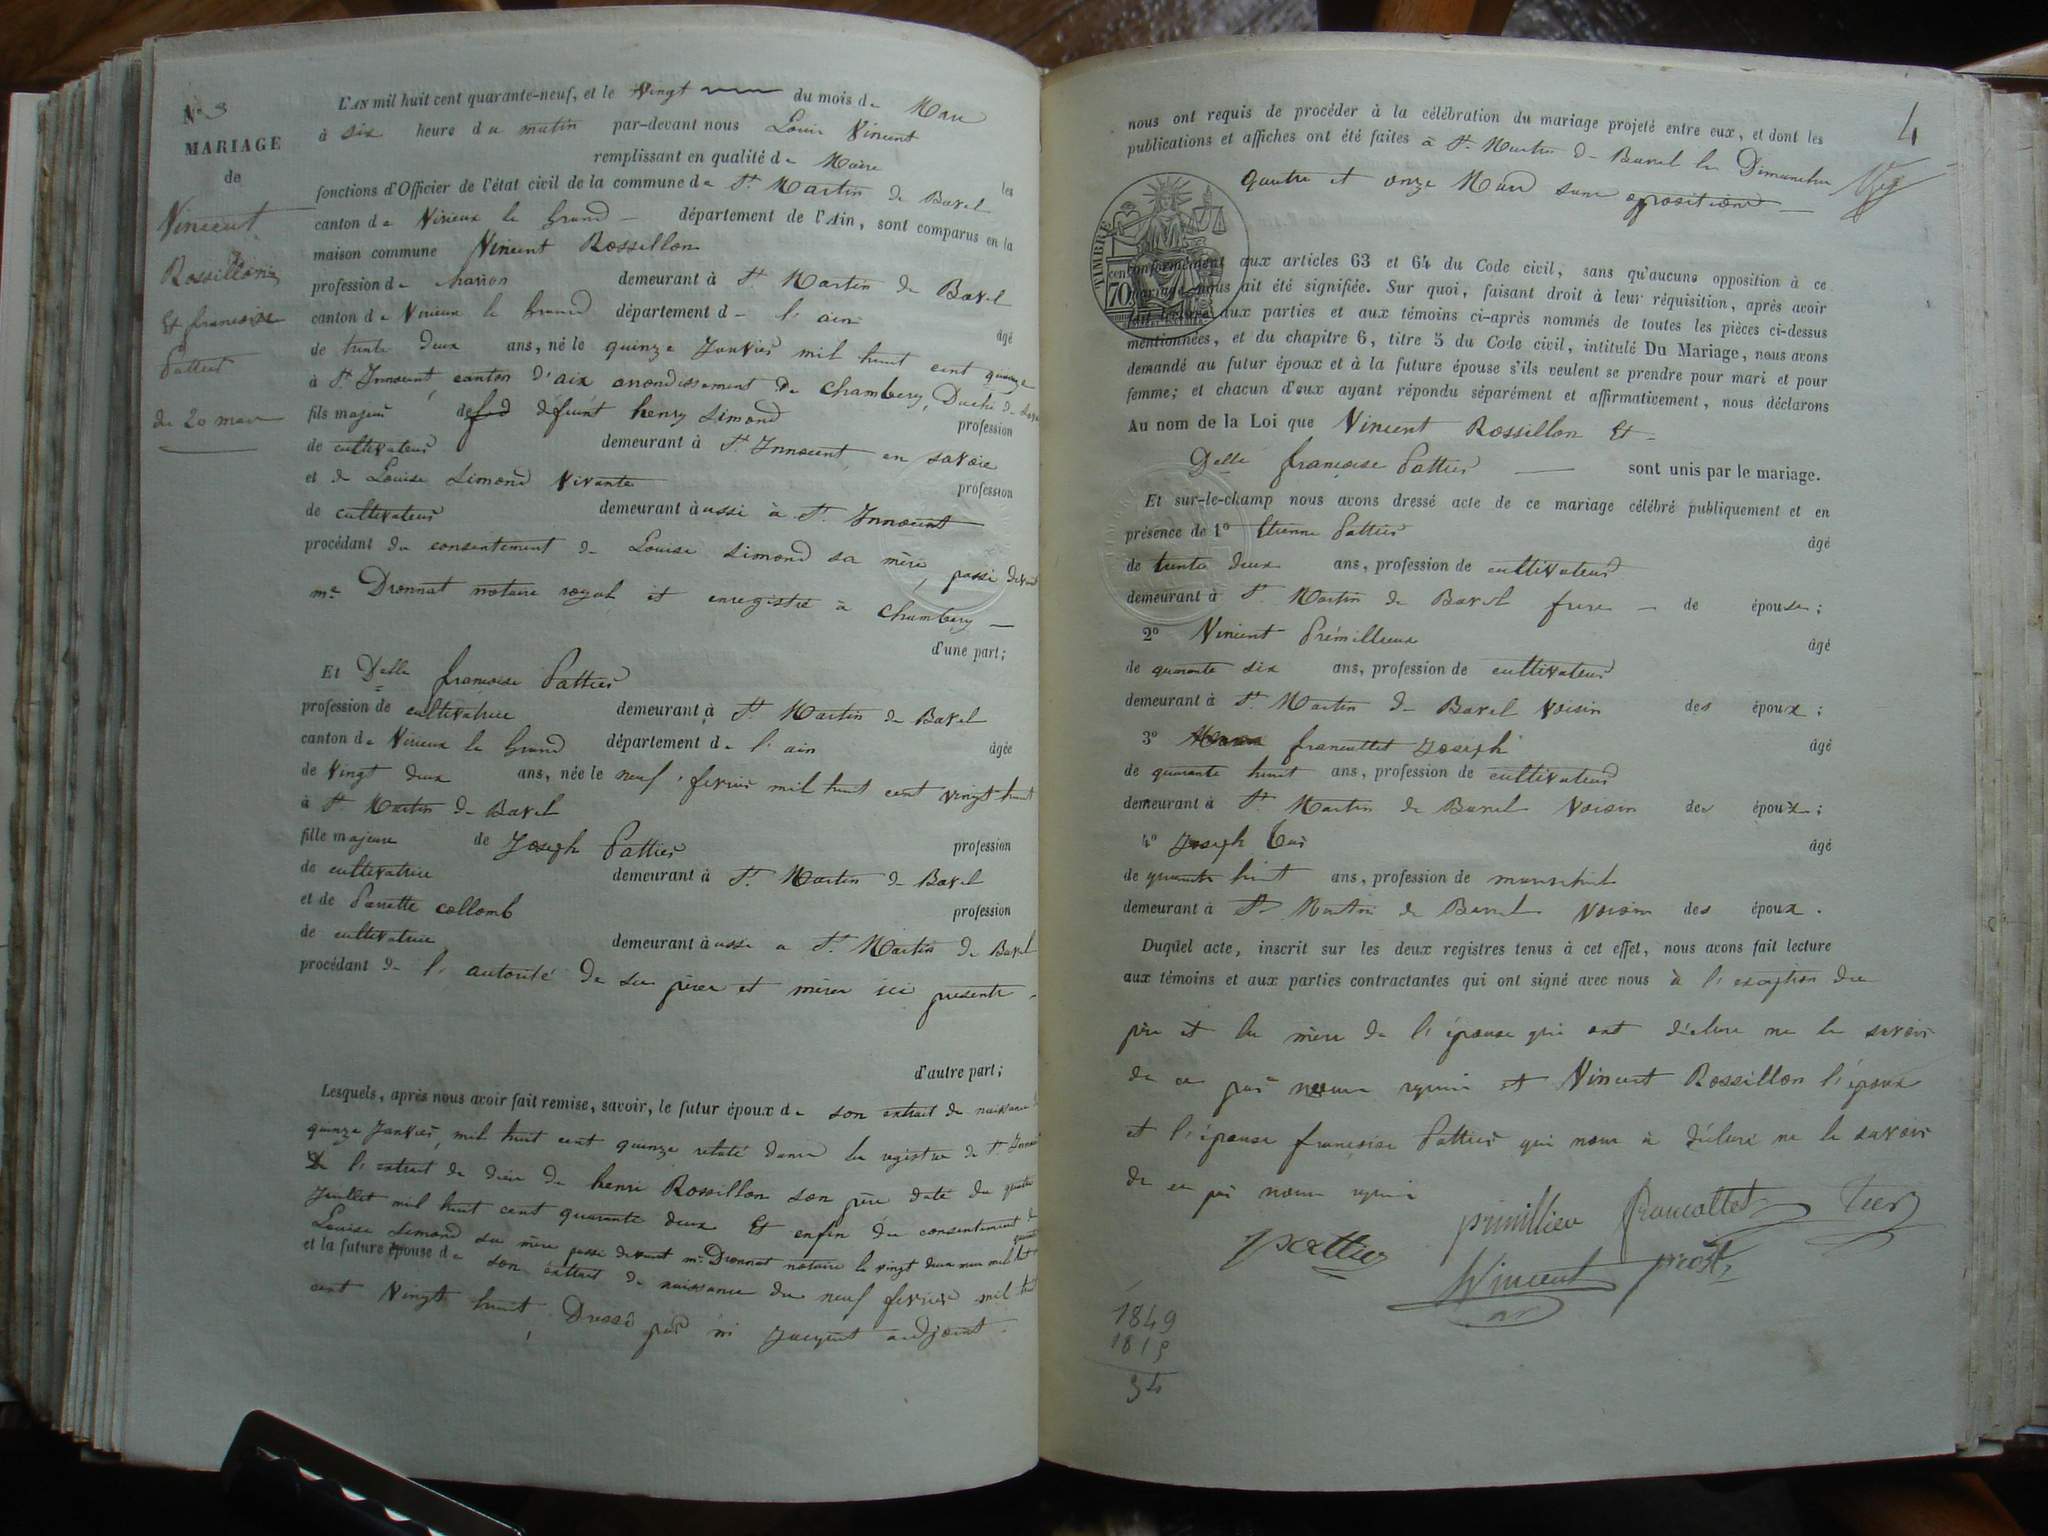 N° 3
MARIAGE
de
Vincent
Rossillon
Et francoise
Pattier
du 20 mars
L'AN mil huit cent quarante-neuf, et le Vingt du mois de Mars
à six heure du matin par-devant nous Louis Vincent
remplissant en qualité de Maire les
fonctions d'Officier de l'état civil de la commune de St Martin de Bavel
canton de Virieux le Grand département de l'Ain, sont comparus en la
maison commune Vincent Rossillon
profession de demeurant à St Martin de Bavel
canton de Virieux le Grand département de l'ain âgé
de trente deux ans, né le quinze Janvier mil huit cent quinze
à St Innocent, canton d'aix arrondissement de Chambery, Duché de
fils majeur de défunt henry Simond profession
de cultivateur demeurant à St Innocent en savoie
et de Louise Simond Vivante profession
de cultivateur demeurant àussi à St Innocent
procédant du consentement de Louise Simond sa mère, passé devant
me Dronnat notaire royal et enregistré à Chambery
d'une part;
Et Delle françoise Pattier
profession de cultivatrice demeurant à St Martin de Bavel
canton de Virieux le Grand département de l'ain âgée
de Vingt deux ans, née le neuf fevrier mil huit cent vingt huit
à St Martin de Bavel
fille majeure de Joseph Pattier profession
de cultivatrice demeurant à St Martin de Bavel
et de Pierrette collomb profession
de cultivatrice demeurant àusse a St Martin de Bavel
procédant de l'autorité de ses père et mère ici présents
d'autre part;
Lesquels, après nous avoir fait remise, savoir, le futur époux de son extrait de naissance
quinze Janvier, mil huit cent quinze relaté dans les registre de St Innocent
De l'extrait de décès de henri Rossillon son père daté du quatre
Juillet mil huit cent quarante deux Et enfin du consentement de
Louise Simond sa mère passé devant me Dronnat notaire le vingt deux mars mil huit
et la future épouse de son extrait de naissance du neuf fevrier mil huit
cent Vingt huit, Dressé par adjoint
4
nous ont requis de procéder à la célébration du mariage projeté entre eux, et dont les
publications et affiches ont été faites à St Martin de Bavel les Dimanches
quatre et onze Mars sans opposition
TIMBRE
70
conformément aux articles 63 et 64 du Code civil, sans qu'aucune opposition à ce
mariage nous ait été signifiée. Sur quoi, faisant droit à leur réquisition, après avoir
fait lecture aux parties et aux témoins ci-après nommés de toutes les pièces ci-dessus
mentionnées, et du chapitre 6, titre 5 du Code civil, intitulé Du Mariage, nous avons
demandé au futur époux et à la future épouse s'ils veulent se prendre pour mari et pour
femme; et chacun d'eux ayant répondu séparément et affirmativement, nous déclarons
Au nom de la Loi que Vincent Rossillon Et
Delle françoise Pattier sont unis par le mariage.
Et sur-le-champ nous avons dressé acte de ce mariage célébré publiquement et en
présence de 1° Etienne Pattier âgé
de trente deux ans, profession de cultivateur
demeurant à St Martin de Bavel frere de épouse;
2° Vincent Prémillieux âgé
de quarante six ans, profession de cultivateur
demeurant à St Martin de Bavel Voisin des époux;
3° francottet Joseph âgé
de quarante huit ans, profession de cultivateur
demeurant à St Martin de Bavel Voisin des époux;
4° Joseph âgé
de quarante huit ans, profession de marechal
demeurant à St Martin de Bavel Voisin des époux.
Duquel acte, inscrit sur les deux registres tenus à cet effet, nous avons fait lecture
aux témoins et aux parties contractantes qui ont signé avec nous à l'exception du
père et la mère de l'épouse qui ont déclare ne le savoir
de ce par nous requis et Vincent Rossillon l'époux
et l'épouse françoise Pattier qui nous a déclaré ne le savoir
de ce par nous requis
primillieu francottet
pattier Vincent prost
1849
1815
34